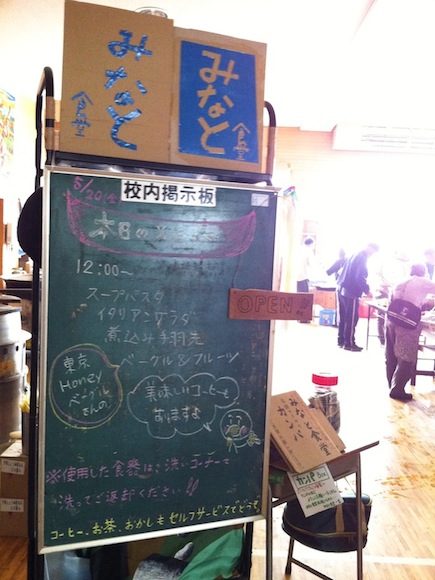 みなと
食堂
みなと
食堂
校内掲示板
5/20(金)
本日の
12:00～
スープパスタ
イタリアンサラダ
煮込み手羽先
ベーグル&フルーツ
東京
Honey
ベーグル
さんの
美味しいコーヒーも
ありますよ
OPEN
※使用した食器は、洗いコーナーで
洗ってご返却ください!!
コーヒー、お茶、おかしもセルフサービスでどうぞ。
みなと食堂
カンパ
カンパBox